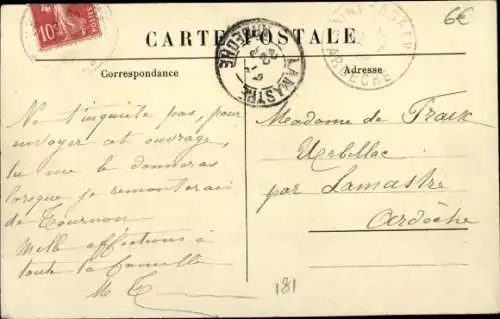 10c
POSTES
6€
CARTE POSTALE
LAMASTRE
ARDÈCHE
ARDÈCHE
Correspondance
Adresse
Ne t'inquiète pas, pour
envoyer cet ouvrage,
tu me le donneras
lorsque je remonterai
de Tournon
Mille affections à
toute la famille
M
Madame de
par Lamastre
Ardèche
181